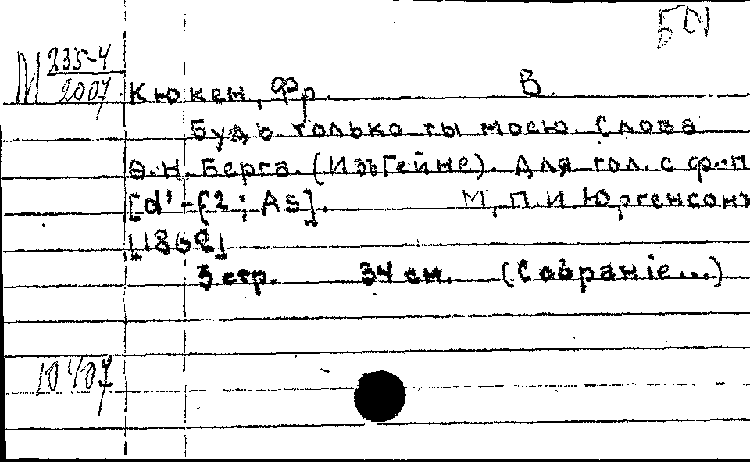 БСП
М 235-4
2007
Кюкен, Фр. В.
Будь только ты моею. Слова
Э. Н. Берга. (Изъ Гейне). Для гол. с ф.-п
[d¹-f2; As]. М, П. И. Юргенсонъ
[1862]
3 стр. 34 см. (Собраніе...)
10407